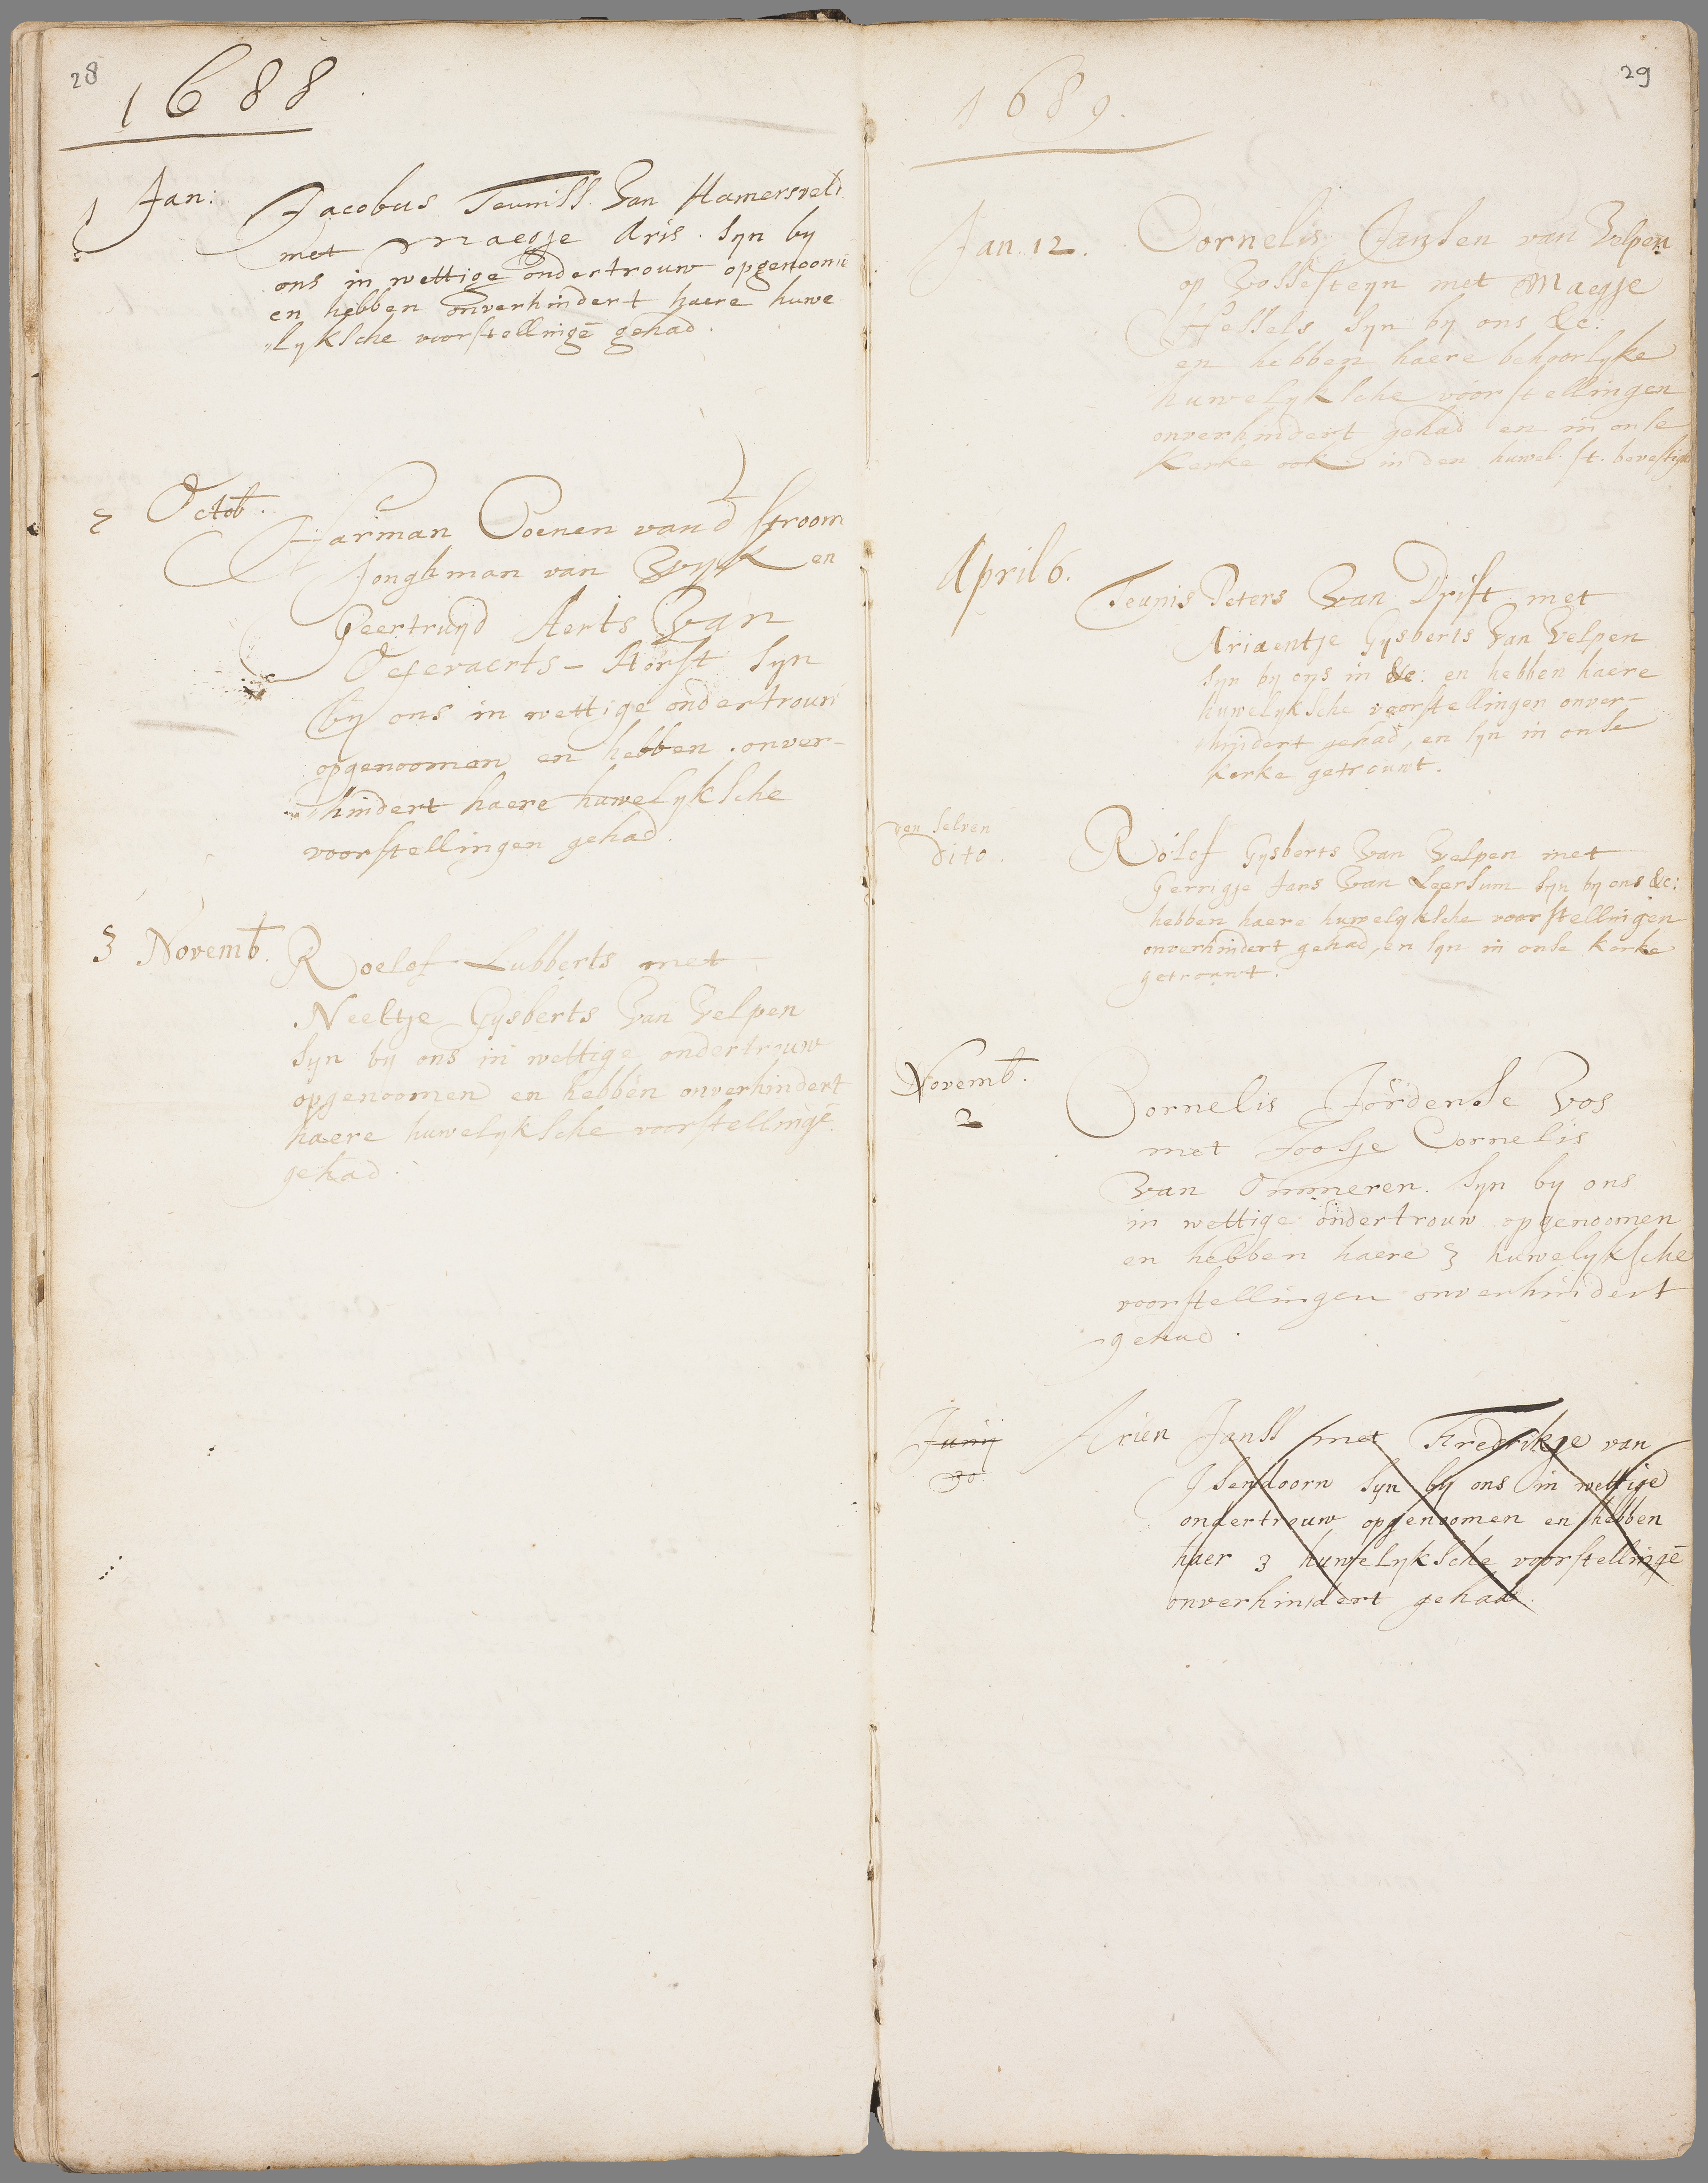 28
1688
1 Jan: Jacobus Teuniss. Van Hamersvelt
met Maegje Aris. syn by
ons in wettige ondertrouw opgenoomē
en hebben onverhindert haere huwe
lyksche voorstellingē gehad.
2 Octob. Harman Coenen vand stroom
Jonghman van Wyk en
Geertruyd Aerts Van
Oeferaerts-Horst syn
by ons in wettige ondertrouw
opgenoomen en hebben onver-
hindert haere huwelyksche
voorstellingen gehad.
3 Novemb. Roelof Lubberts met
Neeltje Gysberts Van Velpen
syn by ons in wettige ondertrouw
opgenoomen en hebben onverhindert
haere huwelyksche voorstellingē
gehad.
29
1689.
Jan. 12. Cornelis Jansen van Velpen
op Vossesteyn met Maegje
Hessels syn by ons &c:
en hebben haere behoorlyke
huwelyksche voorstellingen
onverhindert gehad en in onse
Kerke ook in den huwel. st. bevestigt
April 6. Teunis Peters Van Drift met
Ariaentje Gysberts Van Velpen
syn by ons in &c: en hebben haere
huwelyksche voorstellingen onver-
hindert gehad, en syn in onse
kerke getrouwt.
den selven
dito. Rolof Gysberts Van Velpen met
Gerrigje Jans Van Leersum syn by ons &c:
hebben haere huwelyksche voorstellingen
onverhindert gehad, en syn in onse kerke
getrouwt.
Novemb.
2 Cornelis Jordense Vos
met Jootje Cornelis
van Ommeren. syn by ons
in wettige ondertrouw opgenoomen
en hebben haere 3 huwelyksche
voorstellingen onverhindert
gehad.
Junij
30. Arien Janss met Fredrikje van
Isendoorn syn by ons in wettige
ondertrouw opgenoomen en hebben
haer 3 huwelyksche voorstellingē
onverhindert gehad.